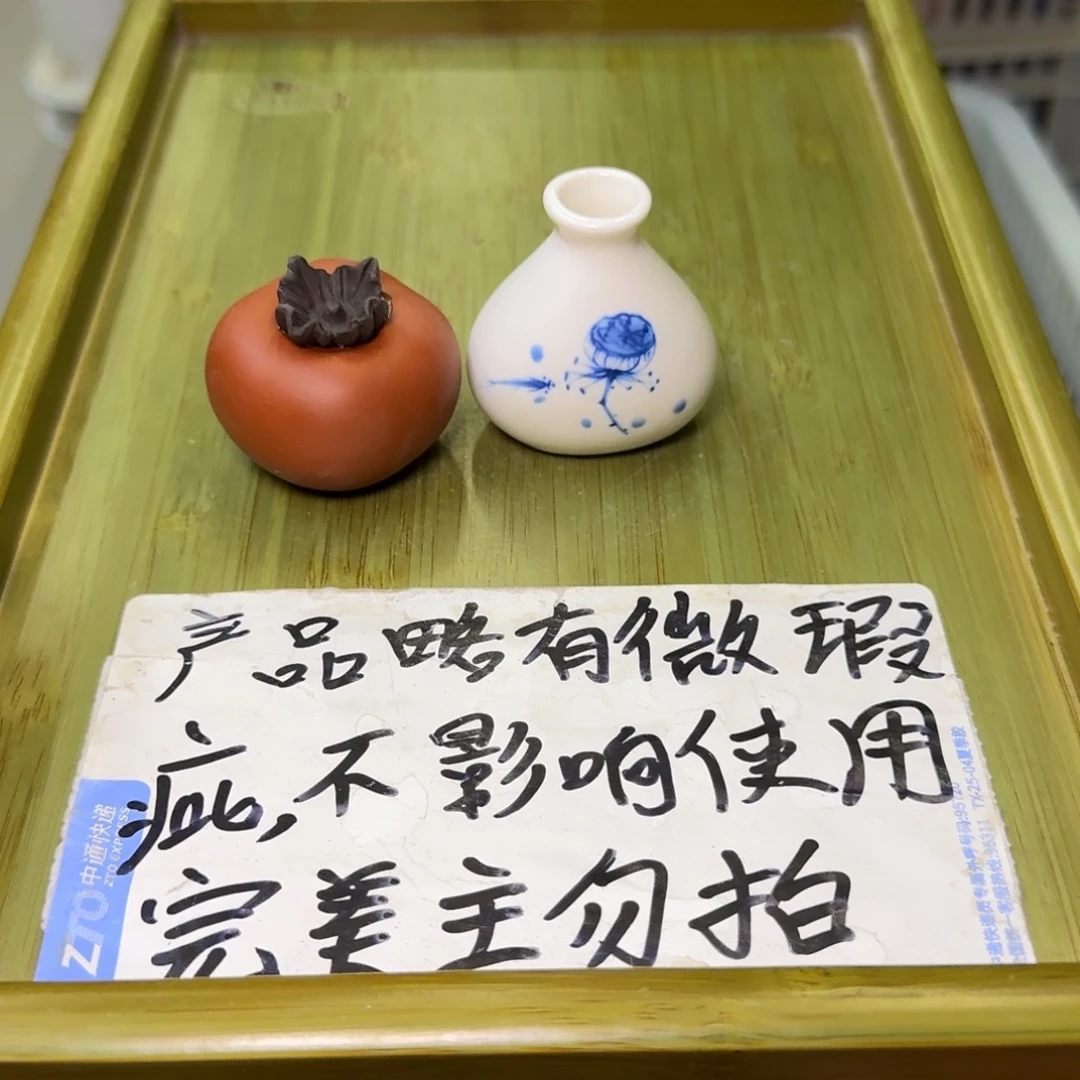 产品略有微瑕
疵,不影响使用
完美主勿拍
ZTO 中通快递
ZTO EXPRESS